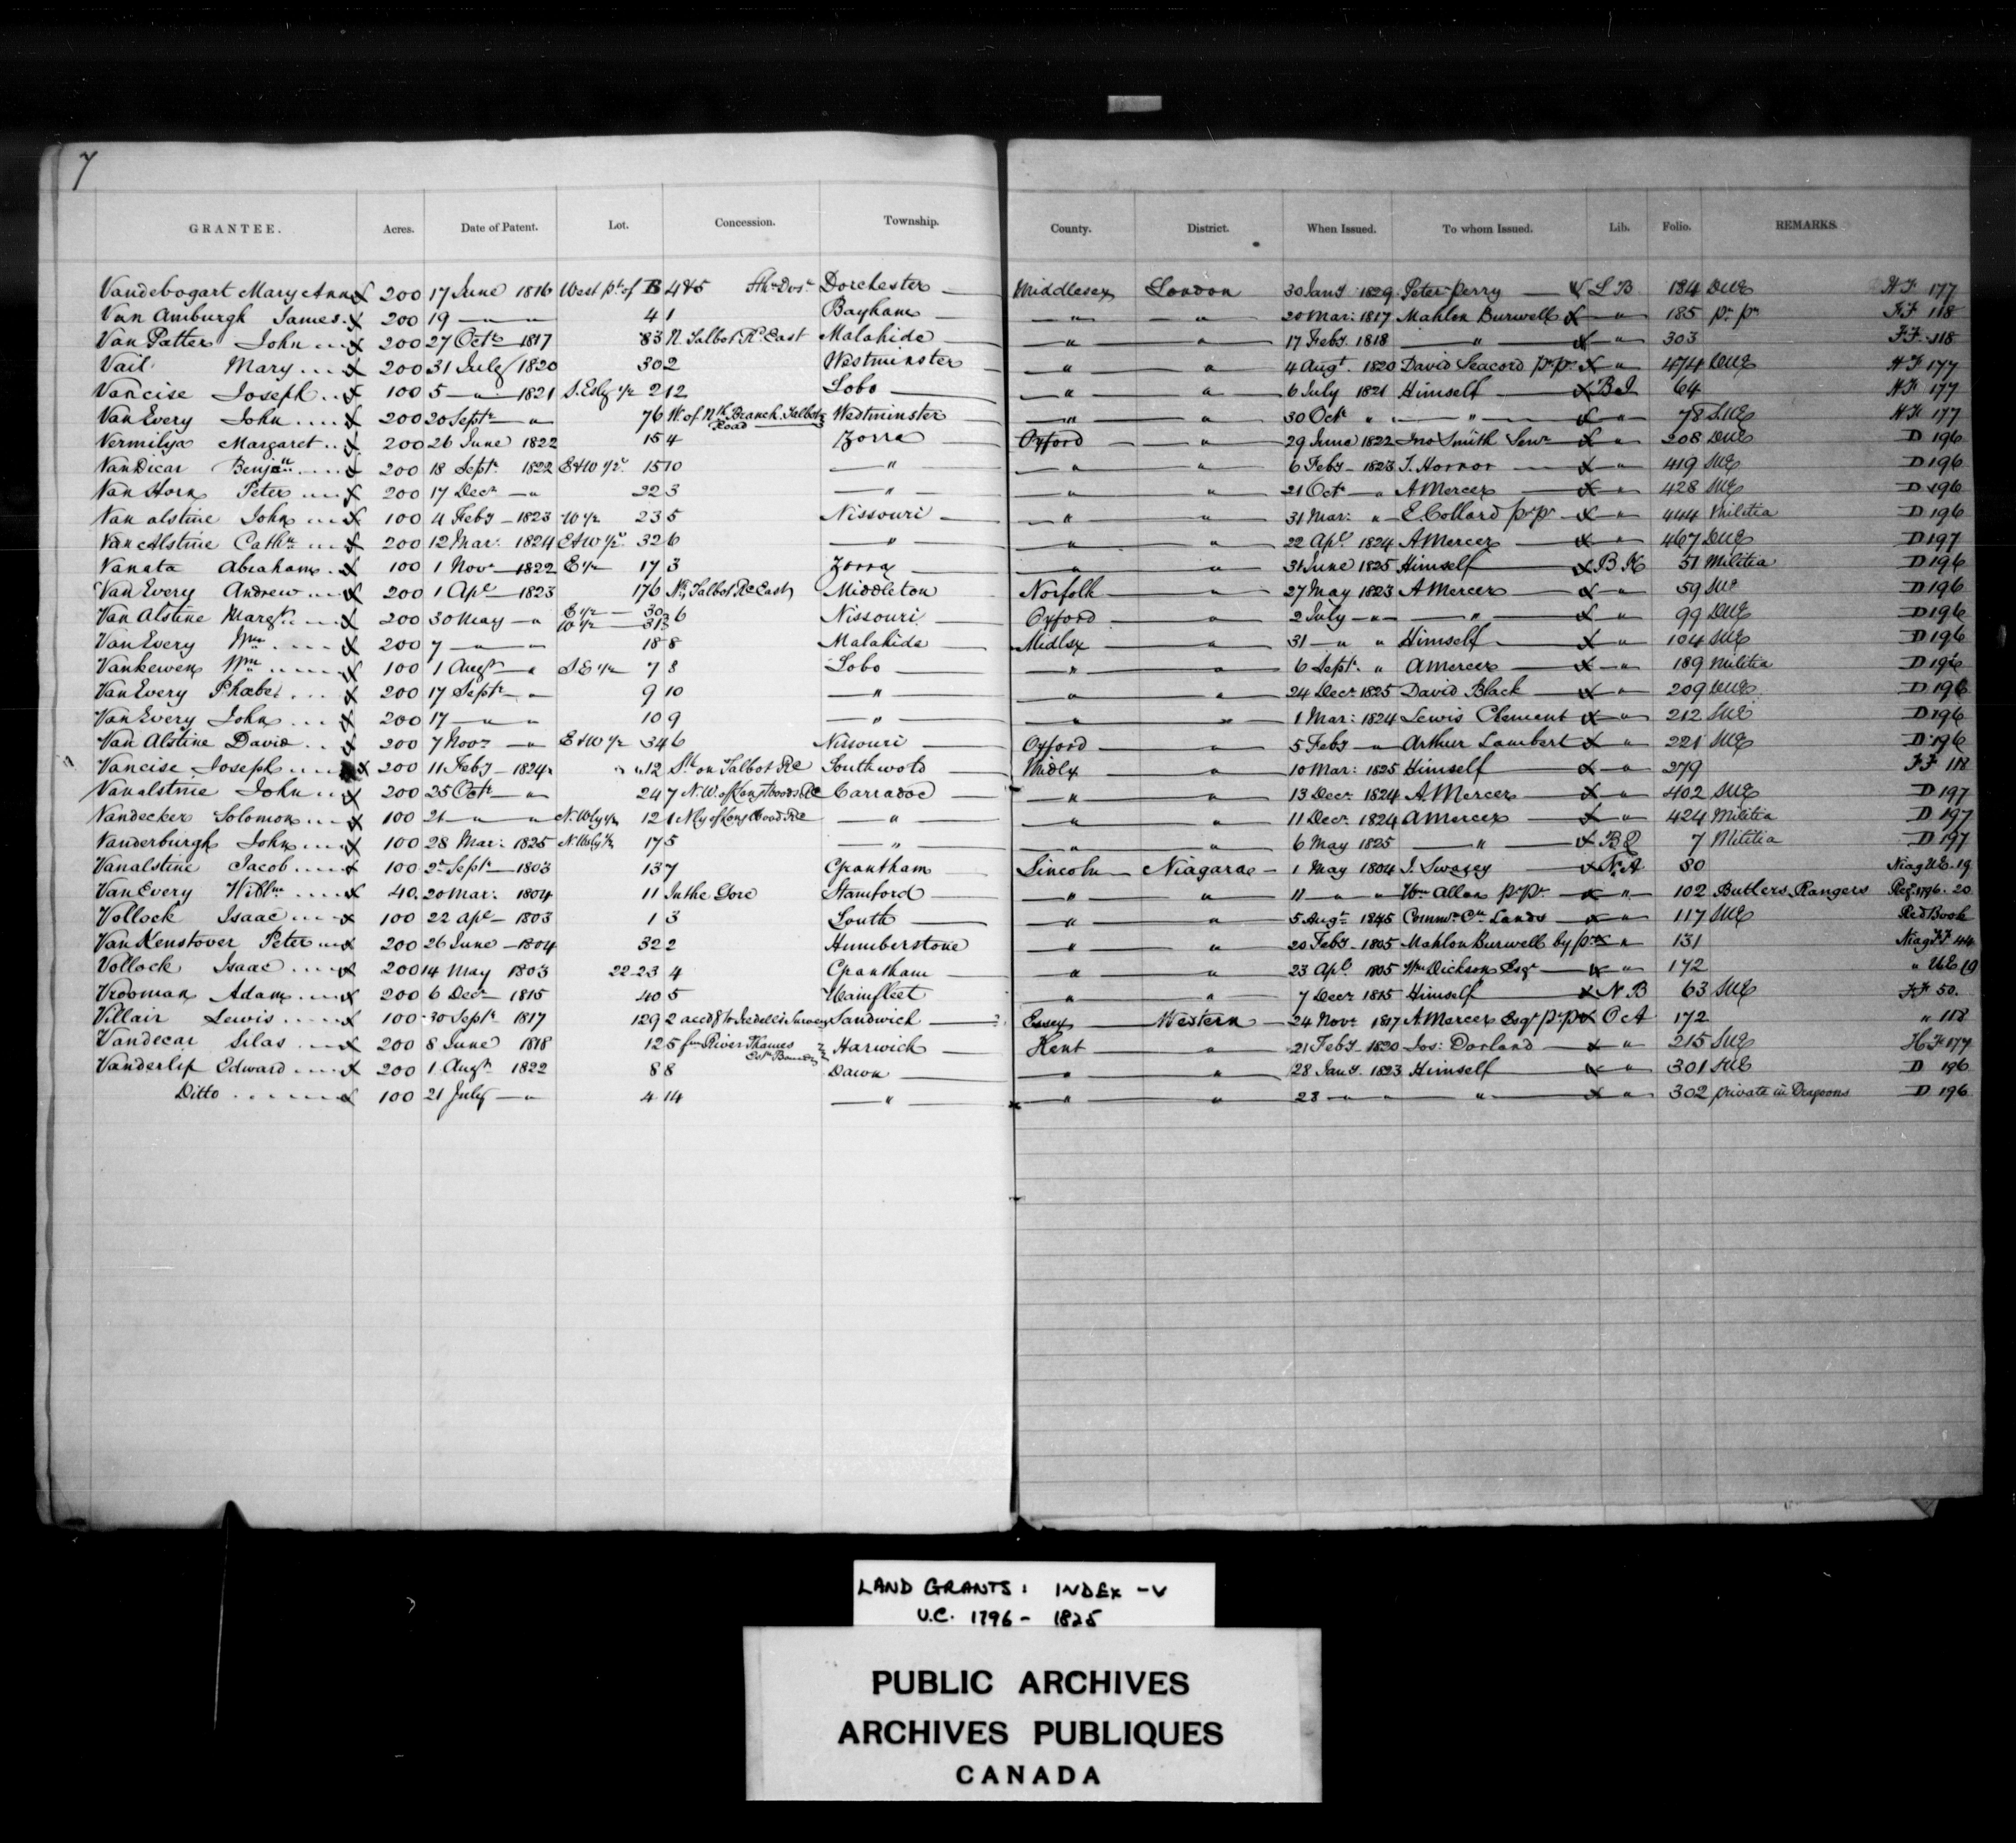 7
GRANTEE. Acres. Date of Patent. Lot. Concession. Township. County. District. When Issued. To whom Issued. Lib. Folio. REMARKS
Vandebogart Mary Ann 200 17 June 1816 West pt of B 4&5 Dorchester Middlesex London 30 Jany 1829 Peter Perry L B 184 DUE 177
Van Amburgh James 200 19 — " — " 4 1 Bayham " " 20 Mar: 1817 Mahlon Burwell " 185 pr pr FF 118
Van Patter John 200 27 Octr 1817 83 N. Talbot Rd East Malahide " " 17 Feby 1818 " " 303 FF 118
Vail Mary 200 31 July 1820 30 2 Westminster " " 4 Augt 1820 David Seacord pr pr " 474 DUE 177
Vancise Joseph 100 5 — " — 1821 S. Esly ½ 2 12 Lobo " " 6 July 1821 Himself B I 64 177
Van Every John 200 20 Septr " 76 W. of Nth Branch Talbot Road Westminster " " 30 Octr " " " 78 SUE 177
Vermilya Margaret 200 26 June 1822 15 4 Zorra Oxford " 29 June 1822 Jno Smith Senr " 208 DUE D 196
VanDicar Benjan 200 18 Septr 1822 E&W ½s 15 10 " " " 6 Feby 1823 J. Horror " 419 SUE D 196
Van Horn Peter 200 17 Decr " 22 3 " " " 21 Octr " A Mercer " 428 SUE D 196
Van alstine John 100 4 Feby 1823 W ½ 23 5 Nissouri " " 31 Mar: " E. Collard pr pr " 444 Militia D 196
Van Alstine Cathn 200 12 Mar: 1824 E&W ½s 32 6 " " " 22 Apl 1824 A Mercer " 467 DUE D 197
Vanata Abraham 100 1 Novr 1822 E ½ 17 3 Zorra " " 31 June 1825 Himself B K 51 Militia D 196
Van Every Andrew 200 1 Apl 1823 176 N. Talbot Rd East Middleton Norfolk " 27 May 1823 A Mercer " 59 SUE D 196
Van Alstine Margt 200 30 May " E ½ 30 W ½ 31 6 Nissouri Oxford " 2 July " " " 99 DUE D 196
Van Every Wm 200 7 " " 18 8 Malahide Midlsx " 31 " " Himself " 104 SUE D 196
Vankewen Wm 100 1 Augt " S. E ½ 7 8 Lobo " " 6 Septr " A Mercer " 189 Militia D 196
Van Every Phœbe 200 17 Septr " 9 10 " " " 24 Decr 1825 David Black " 209 DUE D 196
Van Every John 200 17 " " 10 9 " " " 1 Mar: 1824 Lewis Clement " 212 SUE D 196
Van Alstine David 200 7 Novr " E&W ½ 34 6 Nissouri Oxford " 5 Feby " Arthur Lambert " 221 SUE D 196
Vancise Joseph 200 11 Feby 1824 12 Sth on Talbot Rd Southwold Midlx " 10 Mar: 1825 Himself " 279 FF 118
Vanalstine John 200 25 Octr " 24 7 N.W. of Longwoods Rd Carradoc " " 13 Decr 1824 A. Mercer " 402 SUE D 197
Vandecker Solomon 100 21 " " N. Wly ½ 12 1 Nly of Long Wood Rd " " " 11 Decr 1824 A Mercer " 424 Militia D 197
Vanderburgh John 100 28 Mar: 1825 N. Wly ½ 17 5 " " " 6 May 1825 " B Q 7 Militia D 197
Vanalstine Jacob 100 2 Septr 1803 13 7 Grantham Lincoln Niagara 1 May 1804 J. Swazey N. A 80 Niag UE. 19
Van Every Willm 40. 20 Mar: 1804 11 In the Gore Stamford " " 11 " " Wm Allan pr pr " 102 Butlers Rangers Reg. 1796. 20
Vollock Isaac 100 22 Apl 1803 1 3 Louth " " 5 Augt 1845 Commr Cn Lands " 117 SUE Red Book
Van Kenstover Peter 200 26 June 1804 32 2 Humberstone " " 20 Feby 1805 Mahlon Burwell by pr " 131 Niag FF 44
Vollock Isaac 200 14 May 1803 22 23 4 Grantham " " 23 Apl 1805 Wm Dickson Esqr " 172 " UE 19
Vrooman Adam 200 6 Decr 1815 40 5 Wainfleet " " 7 Decr 1815 Himself N. B 63 SUE FF 50.
Villair Lewis 100 30 Septr 1817 129 2 accdg to Iredell's Survey Sandwich Essex Western 24 Novr 1817 A. Mercer Esqr pr pr Oct A 172 " 118
Vandecar Silas 200 8 June 1818 12 5 fm River Thames Estn Boundy Harwich Kent " 21 Feby 1820 Jos: Dorland " 215 SUE 177
Vanderlip Edward 200 1 Augt 1822 8 8 Dawn " " 28 Jany. 1823 Himself " 301 SUE D 196
Ditto 100 21 July " 4 14 " " " 28 " " " " 302 private in Dragoons D 196
LAND GRANTS: INDEX - V
U.C. 1796 - 1825
PUBLIC ARCHIVES
ARCHIVES PUBLIQUES
CANADA